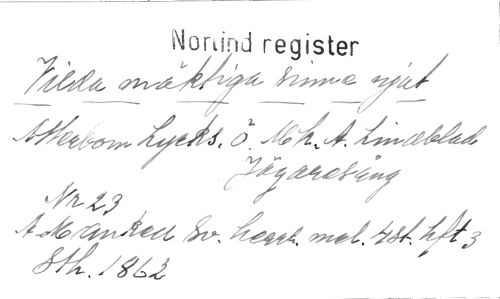 Norlind register
Vilda mäktiga sinne njut
Atterbom Lycks. Ö. Mk. A. Lindblad
Jägaresång
Nr 23
A Mankell Sv. mel. 4 st. hft 3
Sth. 1862